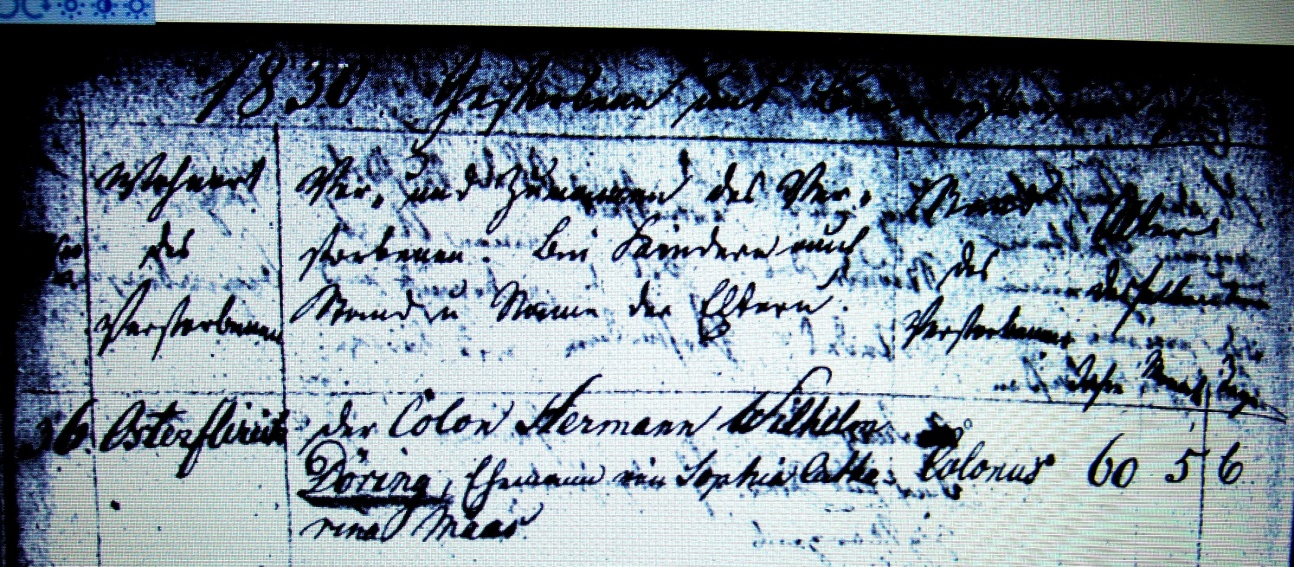 1830. Gestorbene und
Wohnort
des
Verstorbenen
Vor- und Zunamen des Ver-
storbenen. Bei Kindern auch
Stand u Name der Eltern.
Stand
des
Verstorbenen
Alter
desselben
Jahr Monat Tage
36. Osterflierich
der Colon Hermann Wilhelm
Döring, Ehemann von Sophia Catha-
rina Maas
Colonus 60 5 6